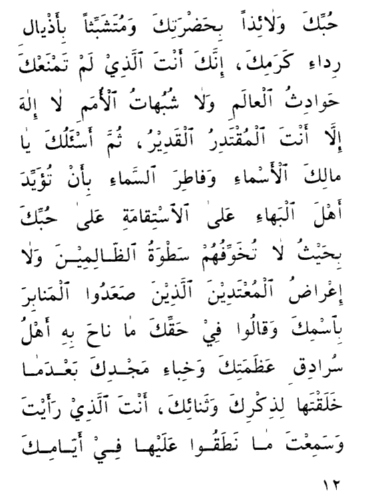 حُبِّكَ وَلَائِذاً بِحَضْرَتِكَ وَمُتَشَبِّثاً بِأَذْيالِ
رِداءِ كَرَمِكَ، إِنَّكَ أَنْتَ ٱلَّذِيْ لَمْ تَمْنَعْكَ
حَوادِثُ ٱلْعالَمِ وَلَا شُبُهاتُ ٱلْأُمَمِ لَا إِلٰهَ
إِلَّا أَنْتَ ٱلْمُقْتَدِرُ ٱلْقَدِيْرُ، ثُمَّ أَسْئَلُكَ يا
مالِكَ ٱلْأَسْماءِ وَفاطِرَ ٱلسَّماءِ بِأَنْ تُؤَيِّدَ
أَهْلَ ٱلْبَهاءِ عَلىٰ ٱلْٱسْتِقامَةِ عَلىٰ حُبِّكَ
بِحَيْثُ لَا تُخَوِّفُهُمْ سَطْوَةُ ٱلظَّالِمِيْنَ وَلَا
إِعْراضُ ٱلْمُعْتَدِيْنَ ٱلَّذِيْنَ صَعَدُوا ٱلْمَنابِرَ
بِٱسْمِكَ وَقالُوا فِيْ حَقِّكَ ما ناحَ بِهِ أَهْلُ
سُرادِقِ عَظَمَتِكَ وَخِباءِ مَجْدِكَ بَعْدَما
خَلَقْتَها لِذِكْرِكَ وَثَنائِكَ، أَنْتَ ٱلَّذِيْ رَأَيْتَ
وَسَمِعْتَ ما نَطَقُوا عَلَيْها فِيْ أَيّامِكَ
١٢